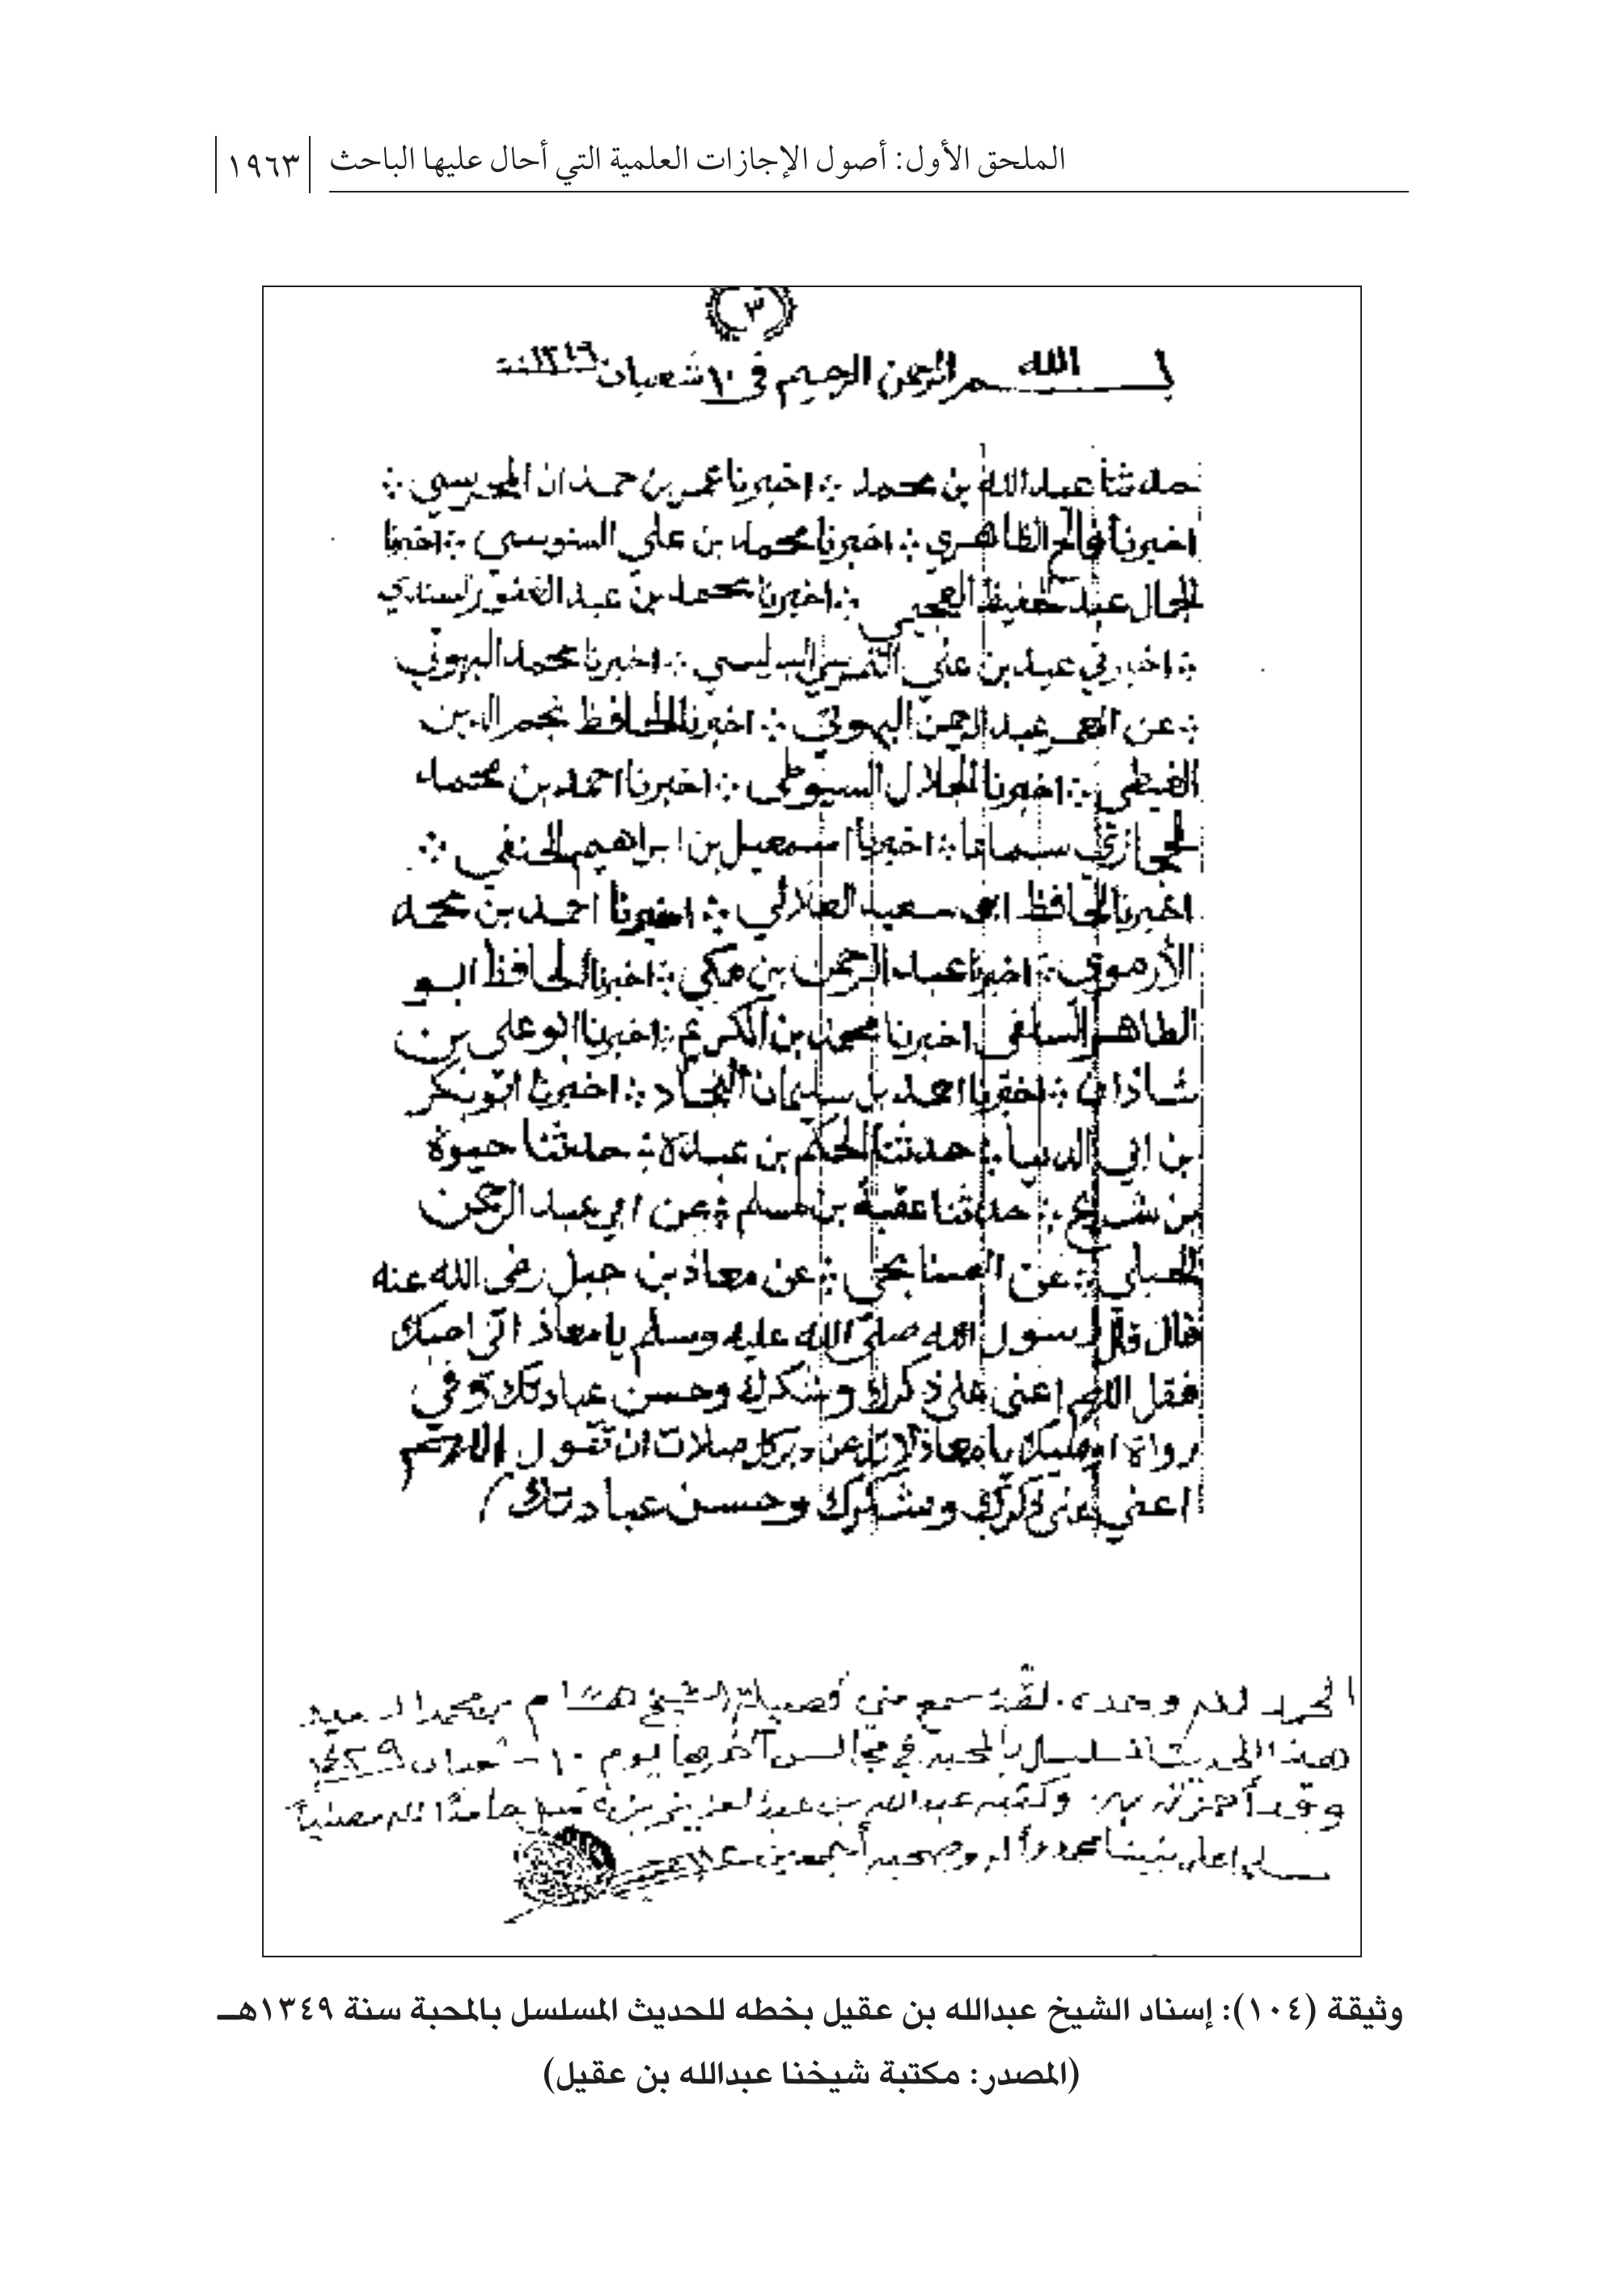 الملحق الأول: أصول الإجازات العلمية التي أحال عليها الباحث ١٩٦٣
٣
بسم الله الرحمن الرحيم في ١٠ شعبان ١٣٤٩ سنة
حدثنا عبد الله بن محمد ؞ اخبرنا عمر بن حمدان المحرسي ؞
اخبرنا فالح الظاهري ؞ اخبرنا محمد بن علي السنوسي ؞ اخبرنا
الجمال عبد الحفيظ العجيمي ؞ اخبرنا محمد بن عبد الغفور السندي
؞ اخبرني عيد بن علي النمرسي البرلسي ؞ اخبرنا محمد البهوتي
؞ عن عبد الرحمن البهوتي ؞ اخبرنا الحافظ نجم الدين
الغيطي ؞ اخبرنا الجلال السيوطي ؞ اخبرنا احمد بن محمد
الحجازي سماعا ؞ اخبرنا اسمعيل بن ابراهيم الحنفي ؞
اخبرنا الحافظ ابو سعيد العلائي ؞ اخبرنا احمد بن محمد
الأرموي ؞ اخبرنا عبد الرحمن بن مكي ؞ اخبرنا الحافظ ابو
الطاهر السلفي اخبرنا محمد بن الكريم ؞ اخبرنا ابو علي بن
شاذان ؞ اخبرنا احمد بن سليمان النجاد ؞ اخبرنا ابو بكر
بن ابي الدنيا ؞ حدثنا الحكم بن عبدة ؞ حدثنا حيوة
بن شريح ؞ حدثنا عقبة بن مسلم ؞ عن ابي عبد الرحمن
الحبلي ؞ عن الصنابحي ؞ عن معاذ بن جبل رضي الله عنه
قال قال رسول الله صلى الله عليه وسلم يا معاذ اني احبك
فقل اللهم اعني على ذكرك وشكرك وحسن عبادتك وفي
رواة اوصيك يا معاذ لا تدعن دبر كل صلات ان تقول اللهم
اعني على ذكرك وشكرك وحسن عبادتك
الحمد لله وحده. لقد سمع مني فضيلة الشيخ هشام بن محمد السعيد
هذا الحديث المسلسل بالمحبة في مجالس آخرها يوم ١٠ - شعبان
وقد أجزته به. وكتبه عبد الله بن عبد العزيز بن عقيل حامدًا لله مصليًا
مسلمًا على نبينا محمد وآله وصحبه أجمعين
وثيقة (١٠٤): إسناد الشيخ عبدالله بن عقيل بخطه للحديث المسلسل بالمحبة سنة ١٣٤٩هـ
(المصدر: مكتبة شيخنا عبدالله بن عقيل)